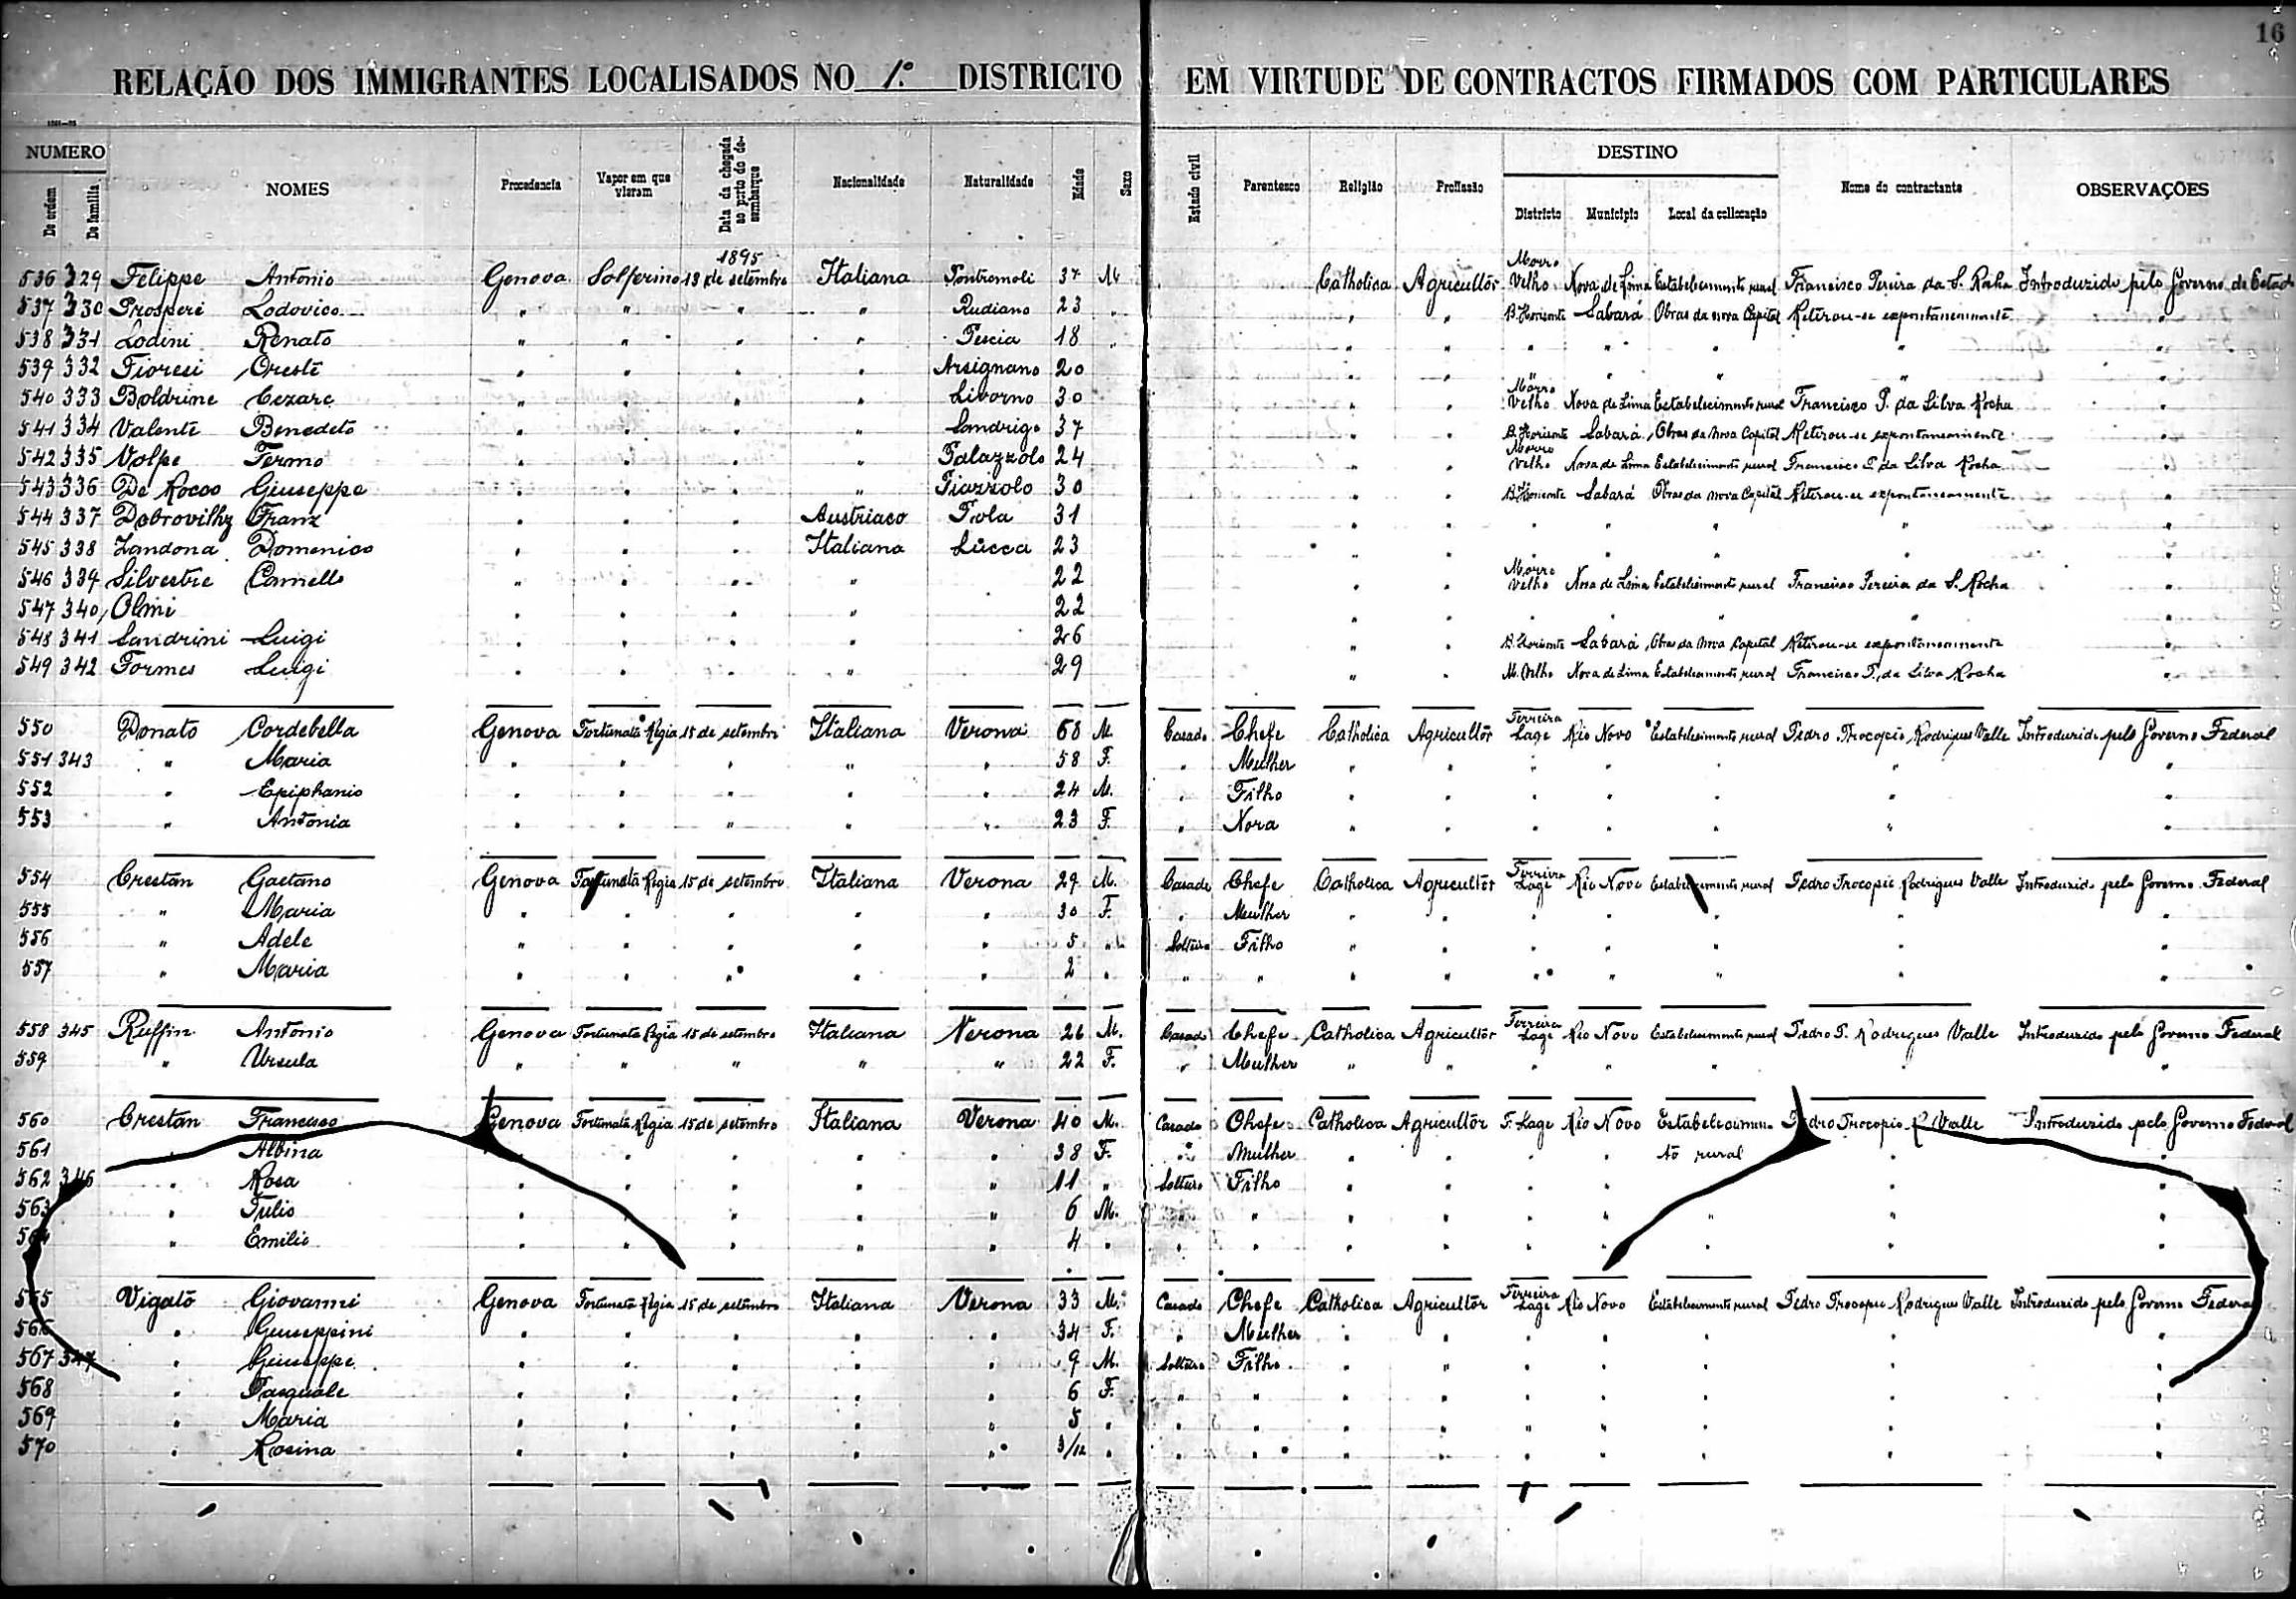 16
RELAÇÃO DOS IMMIGRANTES LOCALISADOS NO 1.º DISTRICTO EM VIRTUDE DE CONTRACTOS FIRMADOS COM PARTICULARES
NUMERO
De ordem De familia NOMES Procedencia Vapor em que vieram Data da chegada ao porto do desembarque Nacionalidade Naturalidade Edade Sexo Estado civil Parentesco Religião Profissão DESTINO Districto Municipio Local da collocação Nome do contractante OBSERVAÇÕES
1895
536 329 Felippe Antonio Genova Solferino 13 de setembro Italiana Pontremoli 37 M. Catholica Agricultor Morro Velho Nova de Lima Estabelecimento rural Francisco Pereira da S. Rocha Introduzido pelo Governo do Estado
537 330 Prosperi Lodovico " " " " Rudiano 23 " " " B. Horizonte Sabará Obras da nova Capital Retirou-se expontaneamente "
538 331 Lodini Renato " " " " Pescia 18 " " " " " " " "
539 332 Fioresi Oreste " " " " Arsignano 20 " " " " " " "
540 333 Boldrine Cezare " " " " Livorno 30 " " Morro Velho Nova de Lima Estabelecimento rural Francisco P. da Silva Rocha "
541 334 Valente Benedeto " " " " Sandrigo 37 " " B. Horizonte Sabará Obras da nova Capital Retirou-se expontaneamente "
542 335 Volpe Fermo " " " " Palazzolo 24 " " Morro Velho Nova de Lima Estabelecimento rural Francisco P. da Silva Rocha "
543 336 De Rocco Giuseppe " " " " Piazzolo 30 " " B. Horizonte Sabará Obras da nova Capital Retirou-se expontaneamente "
544 337 Franz " " " Austriaco Pola 31 " " " " " " "
545 338 Zandona Domenico " " " Italiana Lucca 23 " " " " " " "
546 339 Silvestre Camello " " " " 22 " " Morro Velho Nova de Lima Estabelecimento rural Francisco Pereira da S. Rocha "
547 340 Olmi " " " " 22 " " " " " " "
548 341 Sandrini Luigi " " " " 26 " " B. Horizonte Sabará Obras da nova Capital Retirou-se expontaneamente "
549 342 Formes Luigi " " " " 29 " " M. Velho Nova de Lima Estabelecimento rural Francisco P. da Silva Rocha "
550 Donato Cordebella Genova Fortunata Regia 15 de setembro Italiana Verona 68 M. Casado Chefe Catholica Agricultor Ferreira Lage Rio Novo Estabelecimento rural Pedro Procopio Rodrigues Valle Introduzido pelo Governo Federal
551 343 " Maria " " " " " 58 F. " Mulher " " " " " " "
552 " Epiphanio " " " " " 24 M. " Filho " " " " " " "
553 " Antonia " " " " " 23 F. " Nora " " " " " " "
554 Crestan Gaetano Genova Fortunata Regia 15 de setembro Italiana Verona 29 M. Casado Chefe Catholica Agricultor Ferreira Lage Rio Novo Estabelecimento rural Pedro Procopio Rodrigues Valle Introduzido pelo Governo Federal
555 " Maria " " " " " 30 F. " Mulher " " " " " " "
556 " Adele " " " " " 5 " Solteiro Filho " " " " " " "
557 " Maria " " " " " 2 " " " " " " " " " "
558 345 Ruffin Antonio Genova Fortunata Regia 15 de setembro Italiana Verona 26 M. Casado Chefe Catholica Agricultor Ferreira Lage Rio Novo Estabelecimento rural Pedro P. Rodrigues Valle Introduzido pelo Governo Federal
559 " Ursula " " " " " 22 F. " Mulher " " " " " " "
560 Crestan Francisco Genova Fortunata Regia 15 de setembro Italiana Verona 40 M. Casado Chefe Catholica Agricultor F. Lage Rio Novo Estabelecimen- Pedro Procopio R. Valle Introduzido pelo Governo Federal
561 " Albina " " " " " 38 F. " Mulher " " " " to rural " "
562 346 " Rosa " " " " " 11 " Solteiro Filho " " " " " " "
563 " Tulio " " " " " 6 M. " " " " " " " " "
564 " Emilio " " " " " 4 " " " " " " " " " "
565 Vigato Giovanni Genova Fortunata Regia 15 de setembro Italiana Verona 33 M. Casado Chefe Catholica Agricultor Ferreira Lage Rio Novo Estabelecimento rural Pedro Procopio Rodrigues Valle Introduzido pelo Governo Federal
566 " Giuseppini " " " " " 34 F. " Mulher " " " " " " "
567 347 " Giuseppe " " " " " 9 M. Solteiro Filho " " " " " " "
568 " Pasquale " " " " " 6 F. " " " " " " " " "
569 " Maria " " " " " 5 " " " " " " " " " "
570 " Rosina " " " " " 3/12 " " " " " " " " " "